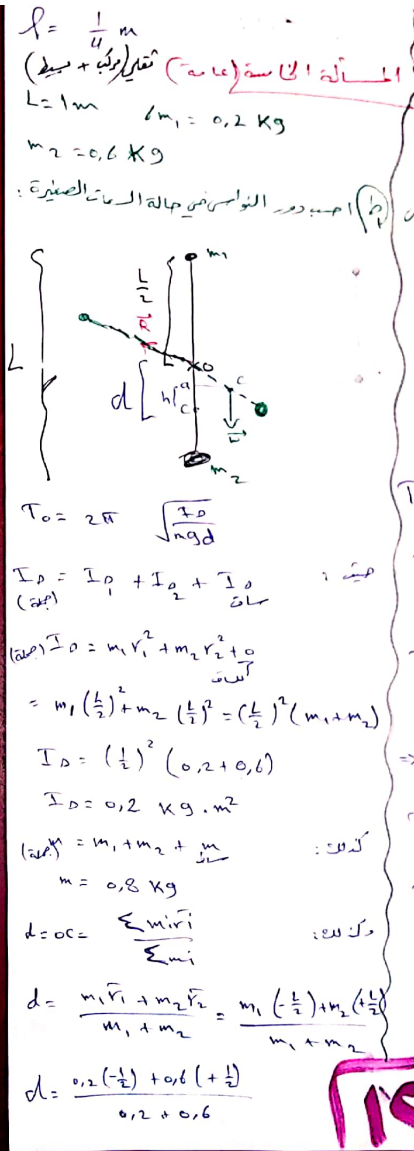 l = 1/4 m
المسألة الخامسة (عامة) ثقلي (مركب + بسيط)
L = 1m m₁ = 0,2 Kg
m₂ = 0,6 Kg
احسب دور النواس في حالة السعات الصغيرة :
m₁
L/2
R
L
o
d [ h [ a
c
c
m₂
T₀ = 2π √(I_D/mgd)
حيث :
I_D (جملة) = I_D₁ + I_D₂ + I_D ساق
(جملة) I_D = m₁r₁² + m₂r₂² + 0
= m₁(L/2)² + m₂(L/2)² = (L/2)²(m₁+m₂)
I_D = (1/2)² (0,2 + 0,6)
I_D = 0,2 kg . m²
كذلك : m (جملة) = m₁ + m₂ + m ساق
m = 0,8 Kg
وكذلك : d = oc = Σmir̄i / Σmi
d = (m₁r̄₁ + m₂r̄₂)/(m₁ + m₂) = (m₁(-L/2) + m₂(+L/2))/(m₁ + m₂)
d = (0,2(-1/2) + 0,6(+1/2))/(0,2 + 0,6)